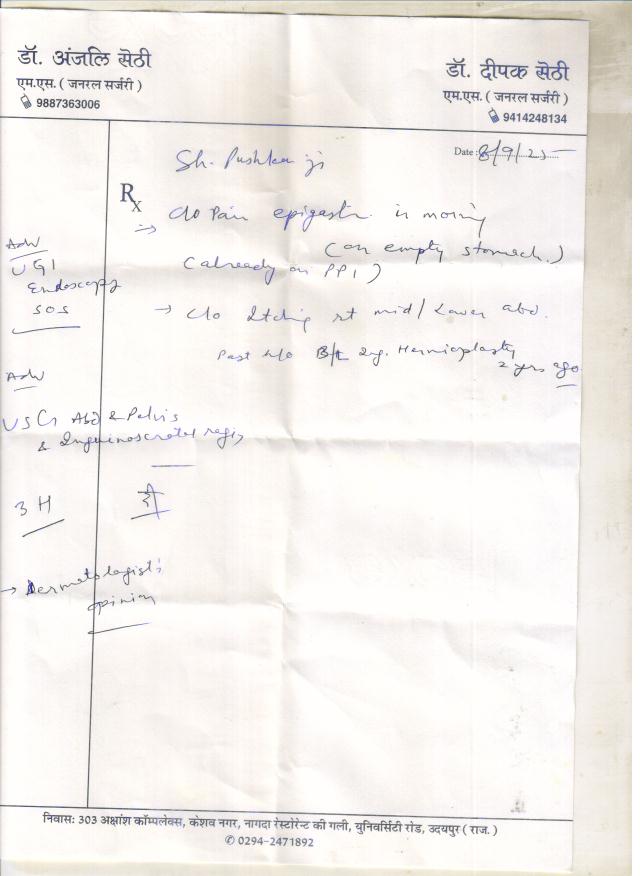 डॉ. अंजलि सेठी
एम.एस. ( जनरल सर्जरी )
9887363006
डॉ. दीपक सेठी
एम.एस. ( जनरल सर्जरी )
9414248134
Date : 8/9/25
Sh. Pushkar ji
Rx
→ c/o Pain epigastr in morning
(on empty stomach.)
(already on PPI)
→ c/o Itching rt mid/Lower abd.
Past h/o B/L Ing. Hernioplasty
2 yrs ago
Adv
UGI
Endoscopy
SOS
Adv
USG Abd & Pelvis
& Inguinoscrotal region
3 H
→ Dermatologist's
opinion
निवास: 303 अक्षांश कॉम्पलेक्स, केशव नगर, नागदा रेस्टोरेन्ट की गली, युनिवर्सिटी रोड, उदयपुर ( राज. )
✆ 0294-2471892